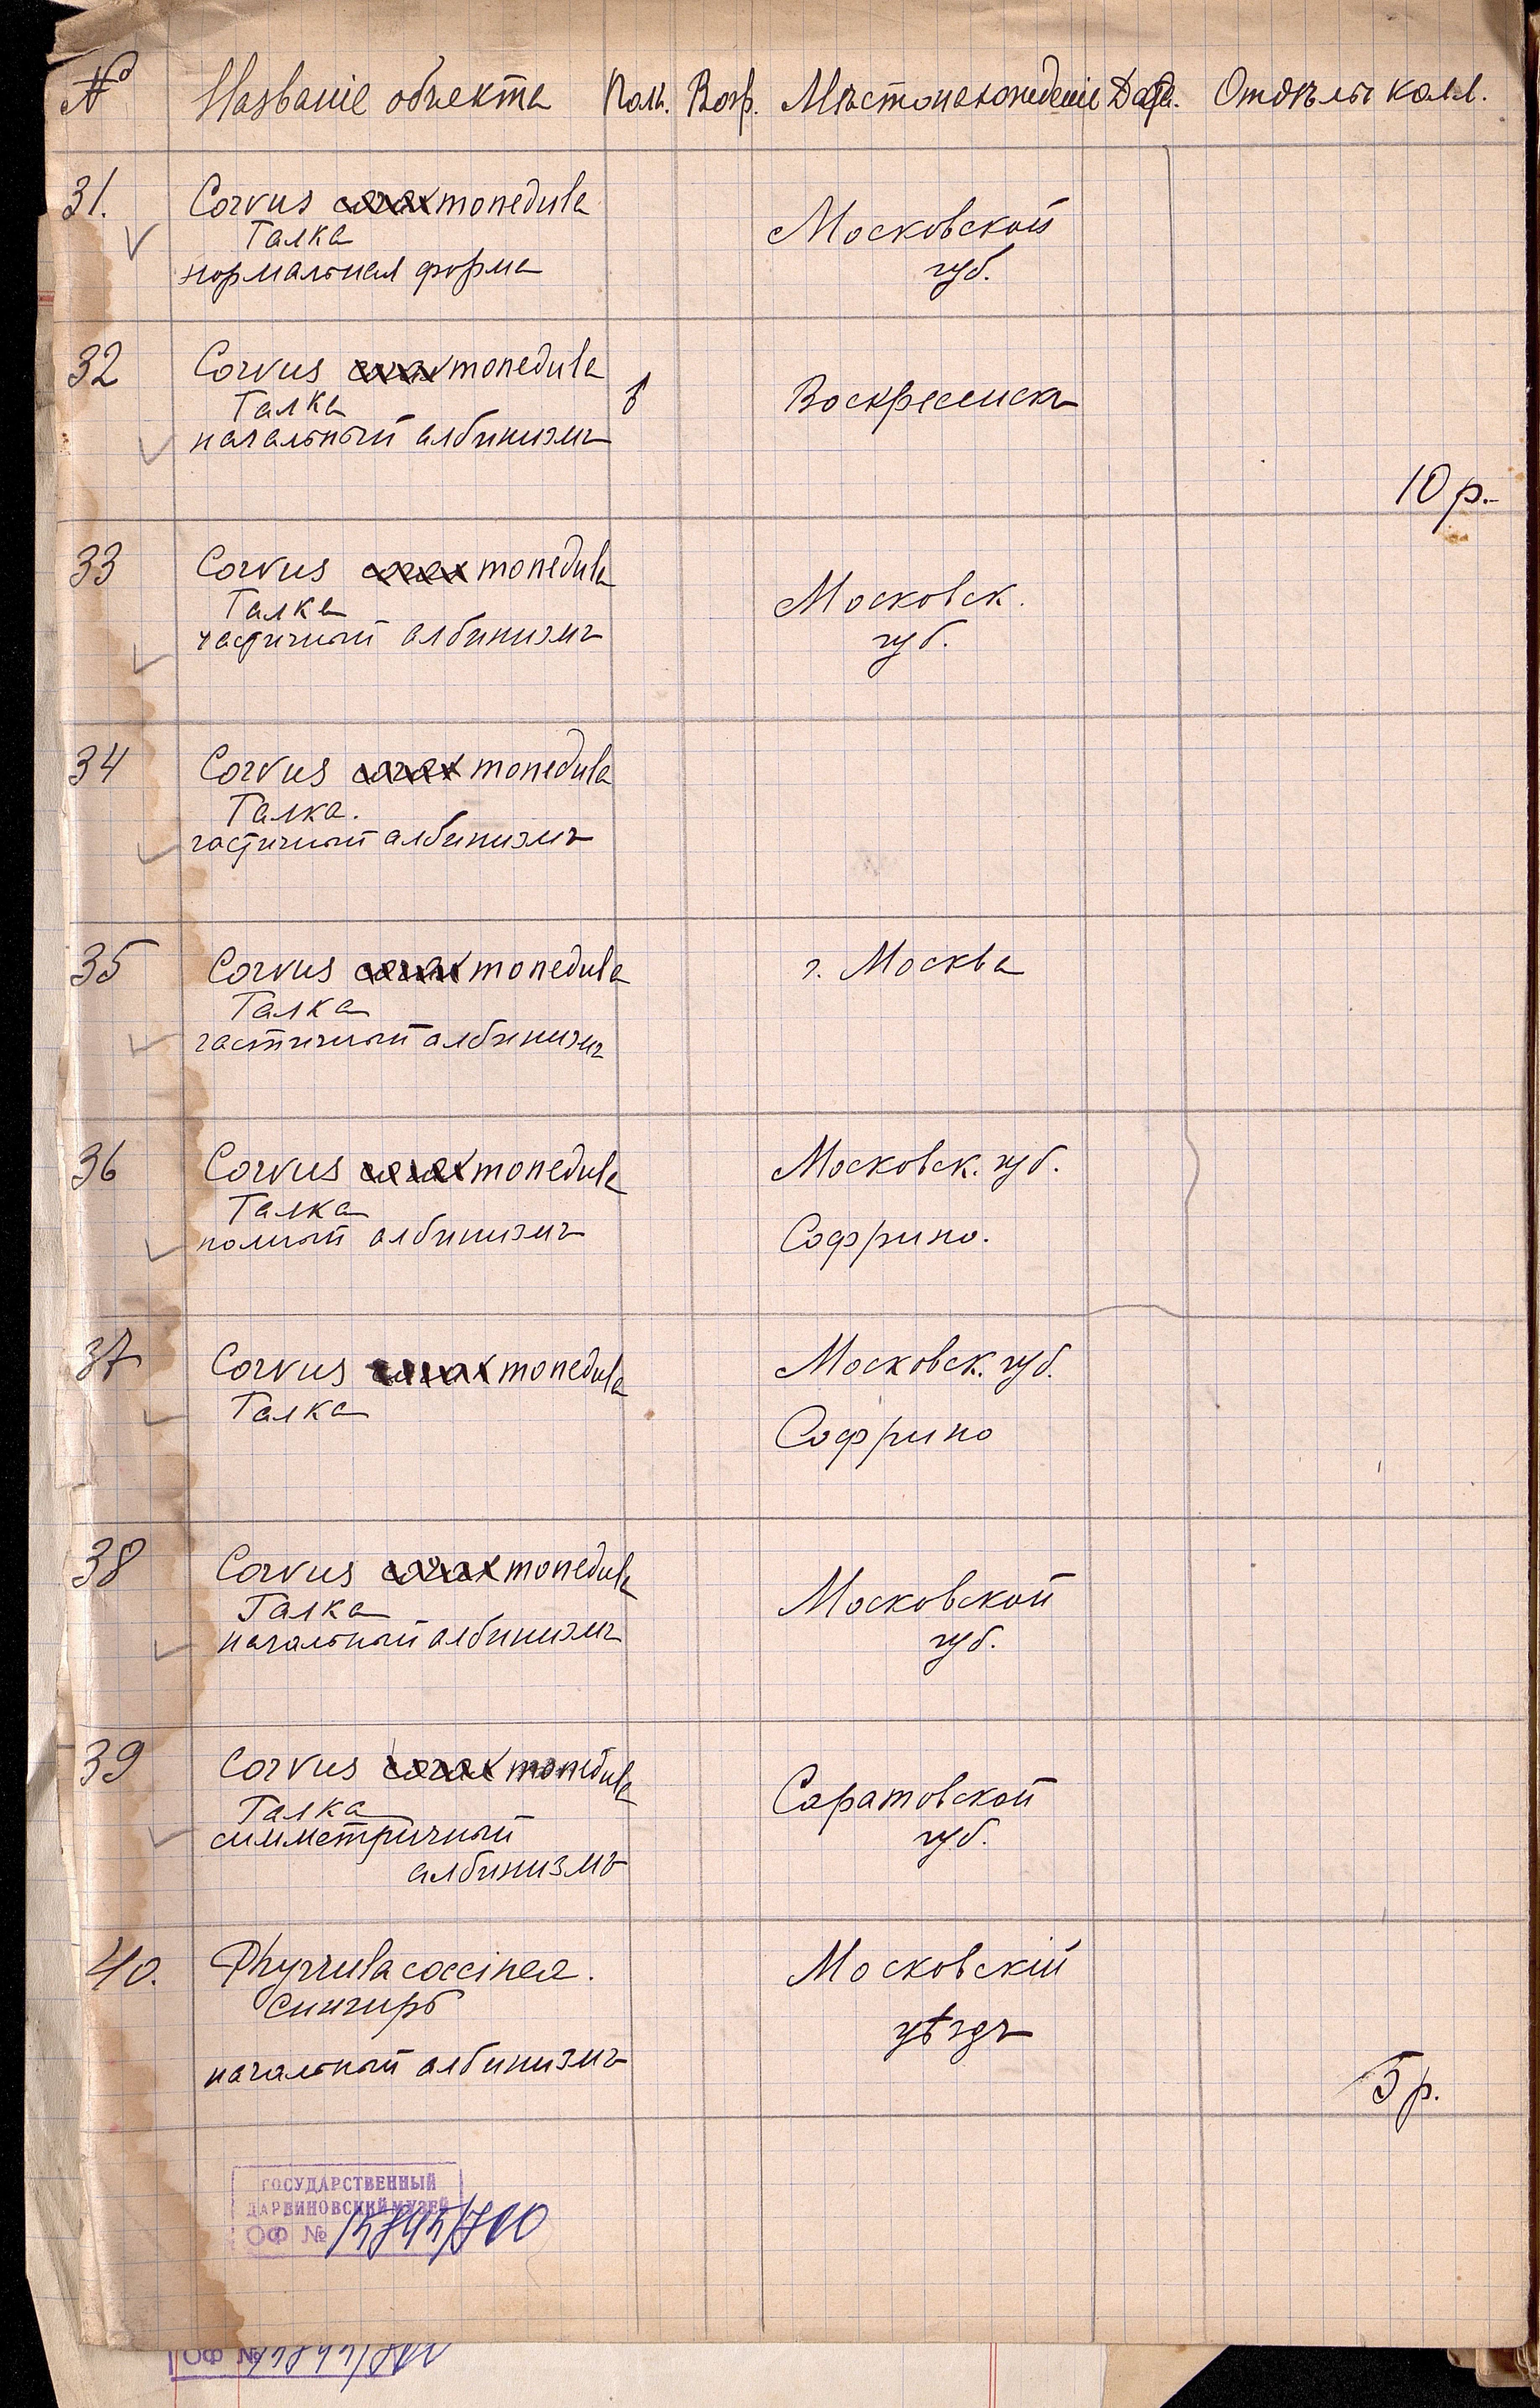 № Названіе объекта Полъ. Возр. Мѣстонахожденіе Дата. Отдѣлы колл.
31. Corvus corax monedula
Галка
нормальная форма
Московской
губ.
32 Corvus corax monedula
Галка
начальный албинизмъ
Воскресенскъ
10 р.
33 Corvus corax monedula
Галка
частичный албинизмъ
Московск.
губ.
34 Corvus corax monedula
Галка.
частичный албинизмъ
35 Corvus corax monedula
Галка
частичный албинизмъ
г. Москва
36 Corvus corax monedula
Галка
полный албинизмъ
Московск. губ.
Софрино.
37 Corvus corax monedula
Галка
Московск. губ.
Софрино
38 Corvus corax monedula
Галка
начальный албинизмъ
Московской
губ.
39 Corvus corax monedula
Галка
симметричный
албинизмъ
Саратовской
губ.
40. Phyrrula coccinea.
Снигирь
начальный албинизмъ
Московскій
уѣздъ
5 р.
ГОСУДАРСТВЕННЫЙ
ДАРВИНОВСКИЙ МУЗЕЙ
ОФ №
ОФ №